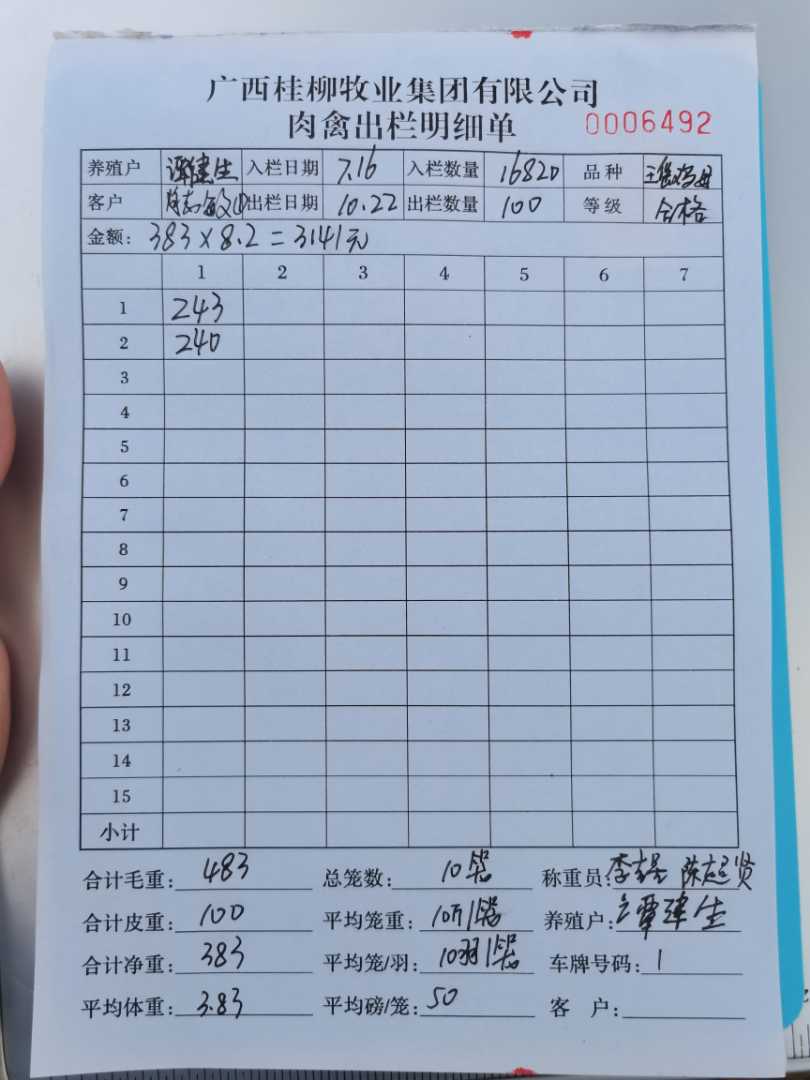 广西桂柳牧业集团有限公司
肉禽出栏明细单 0006492
养殖户 谭建生 入栏日期 7.16 入栏数量 16820 品种
客户 出栏日期 10.22 出栏数量 100 等级 合格
金额: 383×8.2=3141元
1 2 3 4 5 6 7
1 243
2 240
3
4
5
6
7
8
9
10
11
12
13
14
15
小计
合计毛重: 483 总笼数: 10笼 称重员:
合计皮重: 100 平均笼重: 10斤/笼 养殖户: 谭建生
合计净重: 383 平均笼/羽: 10羽/笼 车牌号码: 1
平均体重: 3.83 平均磅/笼: 50 客 户: